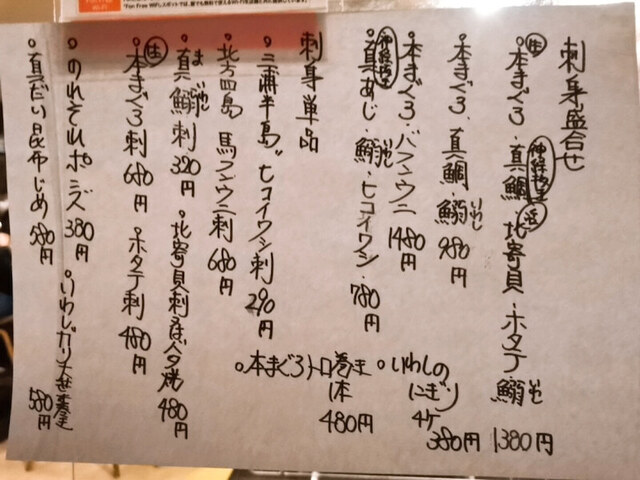 刺身盛合せ
・本まぐろ(生)・真鯛(神経抜き)(活)・北寄貝・ホタテ 鰯(いわし) 1380円
本まぐろ、真鯛、鰯(いわし) 980円
本まぐろ・バフンウニ 1480円
・真あじ(神経抜き)・鰯・ヒコイワシ・780円
・いわしのにぎり 4ケ 380円
・本まぐろトロ巻き 1本 480円
刺身単品
・三浦半島〃ヒコイワシ刺 290円
・北方四島 馬フンウニ刺 680円
・真鰯(まいわし)刺 320円
・北寄貝刺又はバタ焼 480円
・本まぐろ(生)刺 680円
・ホタテ刺 480円
・のれそれポンズ 380円
・いわしガリ大葉巻き 580円
・真だい昆布じめ 580円